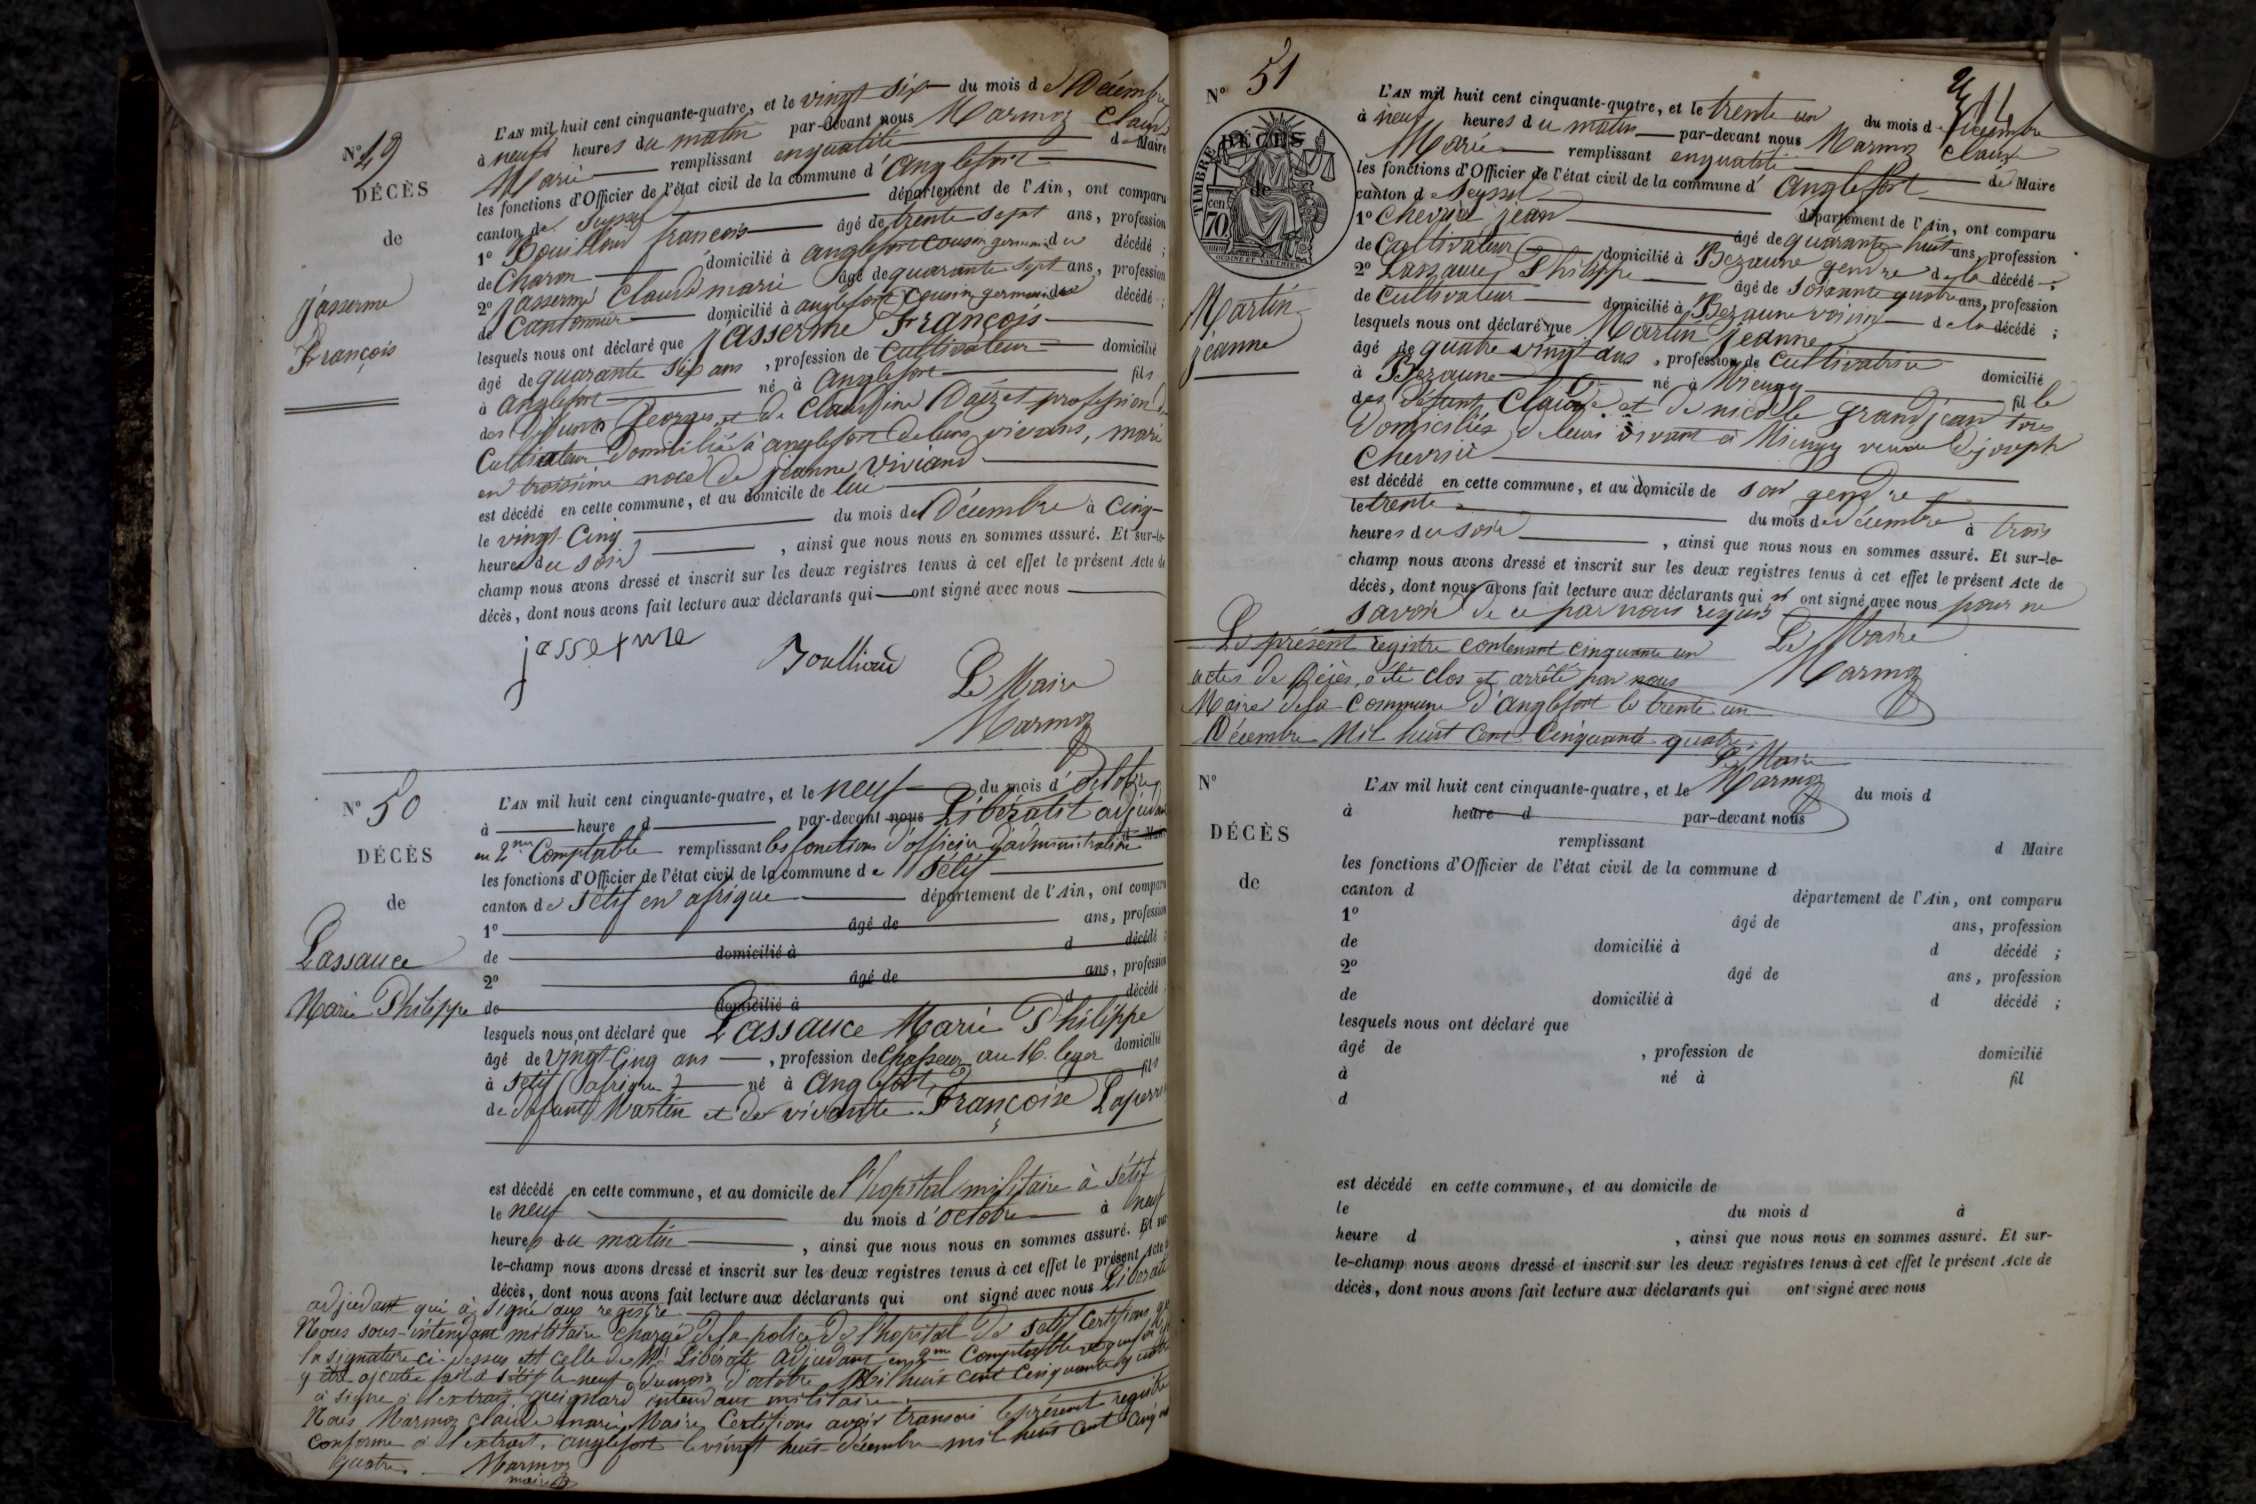 N° 49
DÉCÈS
de
jasserme
François
L'AN mil huit cent cinquante-quatre, et le vingt six du mois de Décembre
à neuf heures du matin par-devant nous Marmoz Claude
Marie remplissant en qualité de Maire
les fonctions d'Officier de l'état civil de la commune d'Anglefort
canton de Seyssel département de l'Ain, ont comparu
1° françois âgé de trente sept ans, profession
de Charon domicilié à anglefort cousin germain du décédé ;
2° jasserme Claude marie âgé de quarante sept ans, profession
de Cantonnier domicilié à anglefort cousin germain du décédé ;
lesquels nous ont déclaré que jasserme François
âgé de quarante six ans, profession de Cultivateur domicilié
à anglefort né à Anglefort fils
des défunts Georges et de Claudine profession de
Cultivateur domiciliés à anglefort de leurs vivans, marié
en troisième noce de jeanne Viviand
est décédé en cette commune, et au domicile de lui
le vingt Cinq du mois de Décembre à Cinq
heures du soir, ainsi que nous nous en sommes assuré. Et sur-le-
champ nous avons dressé et inscrit sur les deux registres tenus à cet effet le présent Acte de
décès, dont nous avons fait lecture aux déclarants qui ont signé avec nous
jasserme
Le Maire
Marmoz
N° 50
DÉCÈS
de
Lassauce
Marie Philippe
L'AN mil huit cent cinquante-quatre, et le neuf du mois d'octobre
à heure d par-devant nous Libératit adjudant
en 2me Comptable remplissant les fonctions d'officier d'administration d Maire
les fonctions d'Officier de l'état civil de la commune de Sétif
canton de Sétif en afrique département de l'Ain, ont comparu
1° âgé de ans, profession
de domicilié à d décédé ;
2° âgé de ans, profession
de domicilié à d décédé ;
lesquels nous ont déclaré que Lassauce Marie Philippe
âgé de vingt Cinq ans, profession de Chasseur au 16. leger domicilié
à Sétif (afrique) né à Anglefort fils
de défunt Martin et de vivante Françoise
est décédé en cette commune, et au domicile de l'hopital militaire à Sétif
le neuf du mois d'octobre à neuf
heures du matin, ainsi que nous nous en sommes assuré. Et sur-
le-champ nous avons dressé et inscrit sur les deux registres tenus à cet effet le présent Acte de
décès, dont nous avons fait lecture aux déclarants qui ont signé avec nous
adjudant qui à signé aux registre
Nous sous-intendant militaire chargé de la police de l'hopital de Sétif Certifions que
la signature ci-dessus est celle de Mr adjudant en 2me Comptable et que foi doit
y être ajoutée fait à Sétif le neuf du mois d'octobre Mil huit cent cinquante quatre
à signé à l'extrait intendant militaire
Nous Marmoz Claude marie Maire Certifions avoir transcri le présent registre
conforme à l'extrait. anglefort le vingt huit décembre mil huit cent cinquante
quatre. Marmoz
maire
214
N° 51
TIMBRE
DÉCÈS
de
cen
70
Martin
jeanne
L'AN mil huit cent cinquante-quatre, et le trente un du mois de décembre
à neuf heures du matin par-devant nous Marmoz Claude
Marie remplissant en qualité de Maire
les fonctions d'Officier de l'état civil de la commune d'Anglefort
canton de Seyssel département de l'Ain, ont comparu
1° Chevrier jean âgé de quarante huit ans, profession
de Cultivateur domicilié à Bezaune gendre de la décédé ;
2° Lassauce Philippe âgé de soixante quatre ans, profession
de Cultivateur domicilié à Bezaune voisin de la décédé ;
lesquels nous ont déclaré que Martin jeanne
âgé de quatre vingt ans, profession de Cultivatrice domicilié
à Bezaune né à fil le
des défunt Claude et de nicole grandjean tous
Domiciliés de leurs vivant à veuve de joseph
Chevrier
est décédé en cette commune, et au domicile de son gendre
le trente du mois de décembre à trois
heures du soir, ainsi que nous nous en sommes assuré. Et sur-le-
champ nous avons dressé et inscrit sur les deux registres tenus à cet effet le présent Acte de
décès, dont nous avons fait lecture aux déclarants qui n'ont signé avec nous pour ne
savoir de ce par nous requis
Le Maire
Marmoz
Le présent registre contenant cinquante un
actes de Décès, a été clos et arrêté par nous
Maire de la Commune d'Anglefort le trente un
Décembre Mil huit Cent Cinquante quatre.
Le Maire
Marmoz
N°
DÉCÈS
de
L'AN mil huit cent cinquante-quatre, et le du mois d
à heure d par-devant nous
remplissant d Maire
les fonctions d'Officier de l'état civil de la commune d
canton d département de l'Ain, ont comparu
1° âgé de ans, profession
de domicilié à d décédé ;
2° âgé de ans, profession
de domicilié à d décédé ;
lesquels nous ont déclaré que
âgé de , profession de domicilié
à né à fil
d
est décédé en cette commune, et au domicile de
le du mois d à
heure d , ainsi que nous nous en sommes assuré. Et sur-
le-champ nous avons dressé et inscrit sur les deux registres tenus à cet effet le présent Acte de
décès, dont nous avons fait lecture aux déclarants qui ont signé avec nous